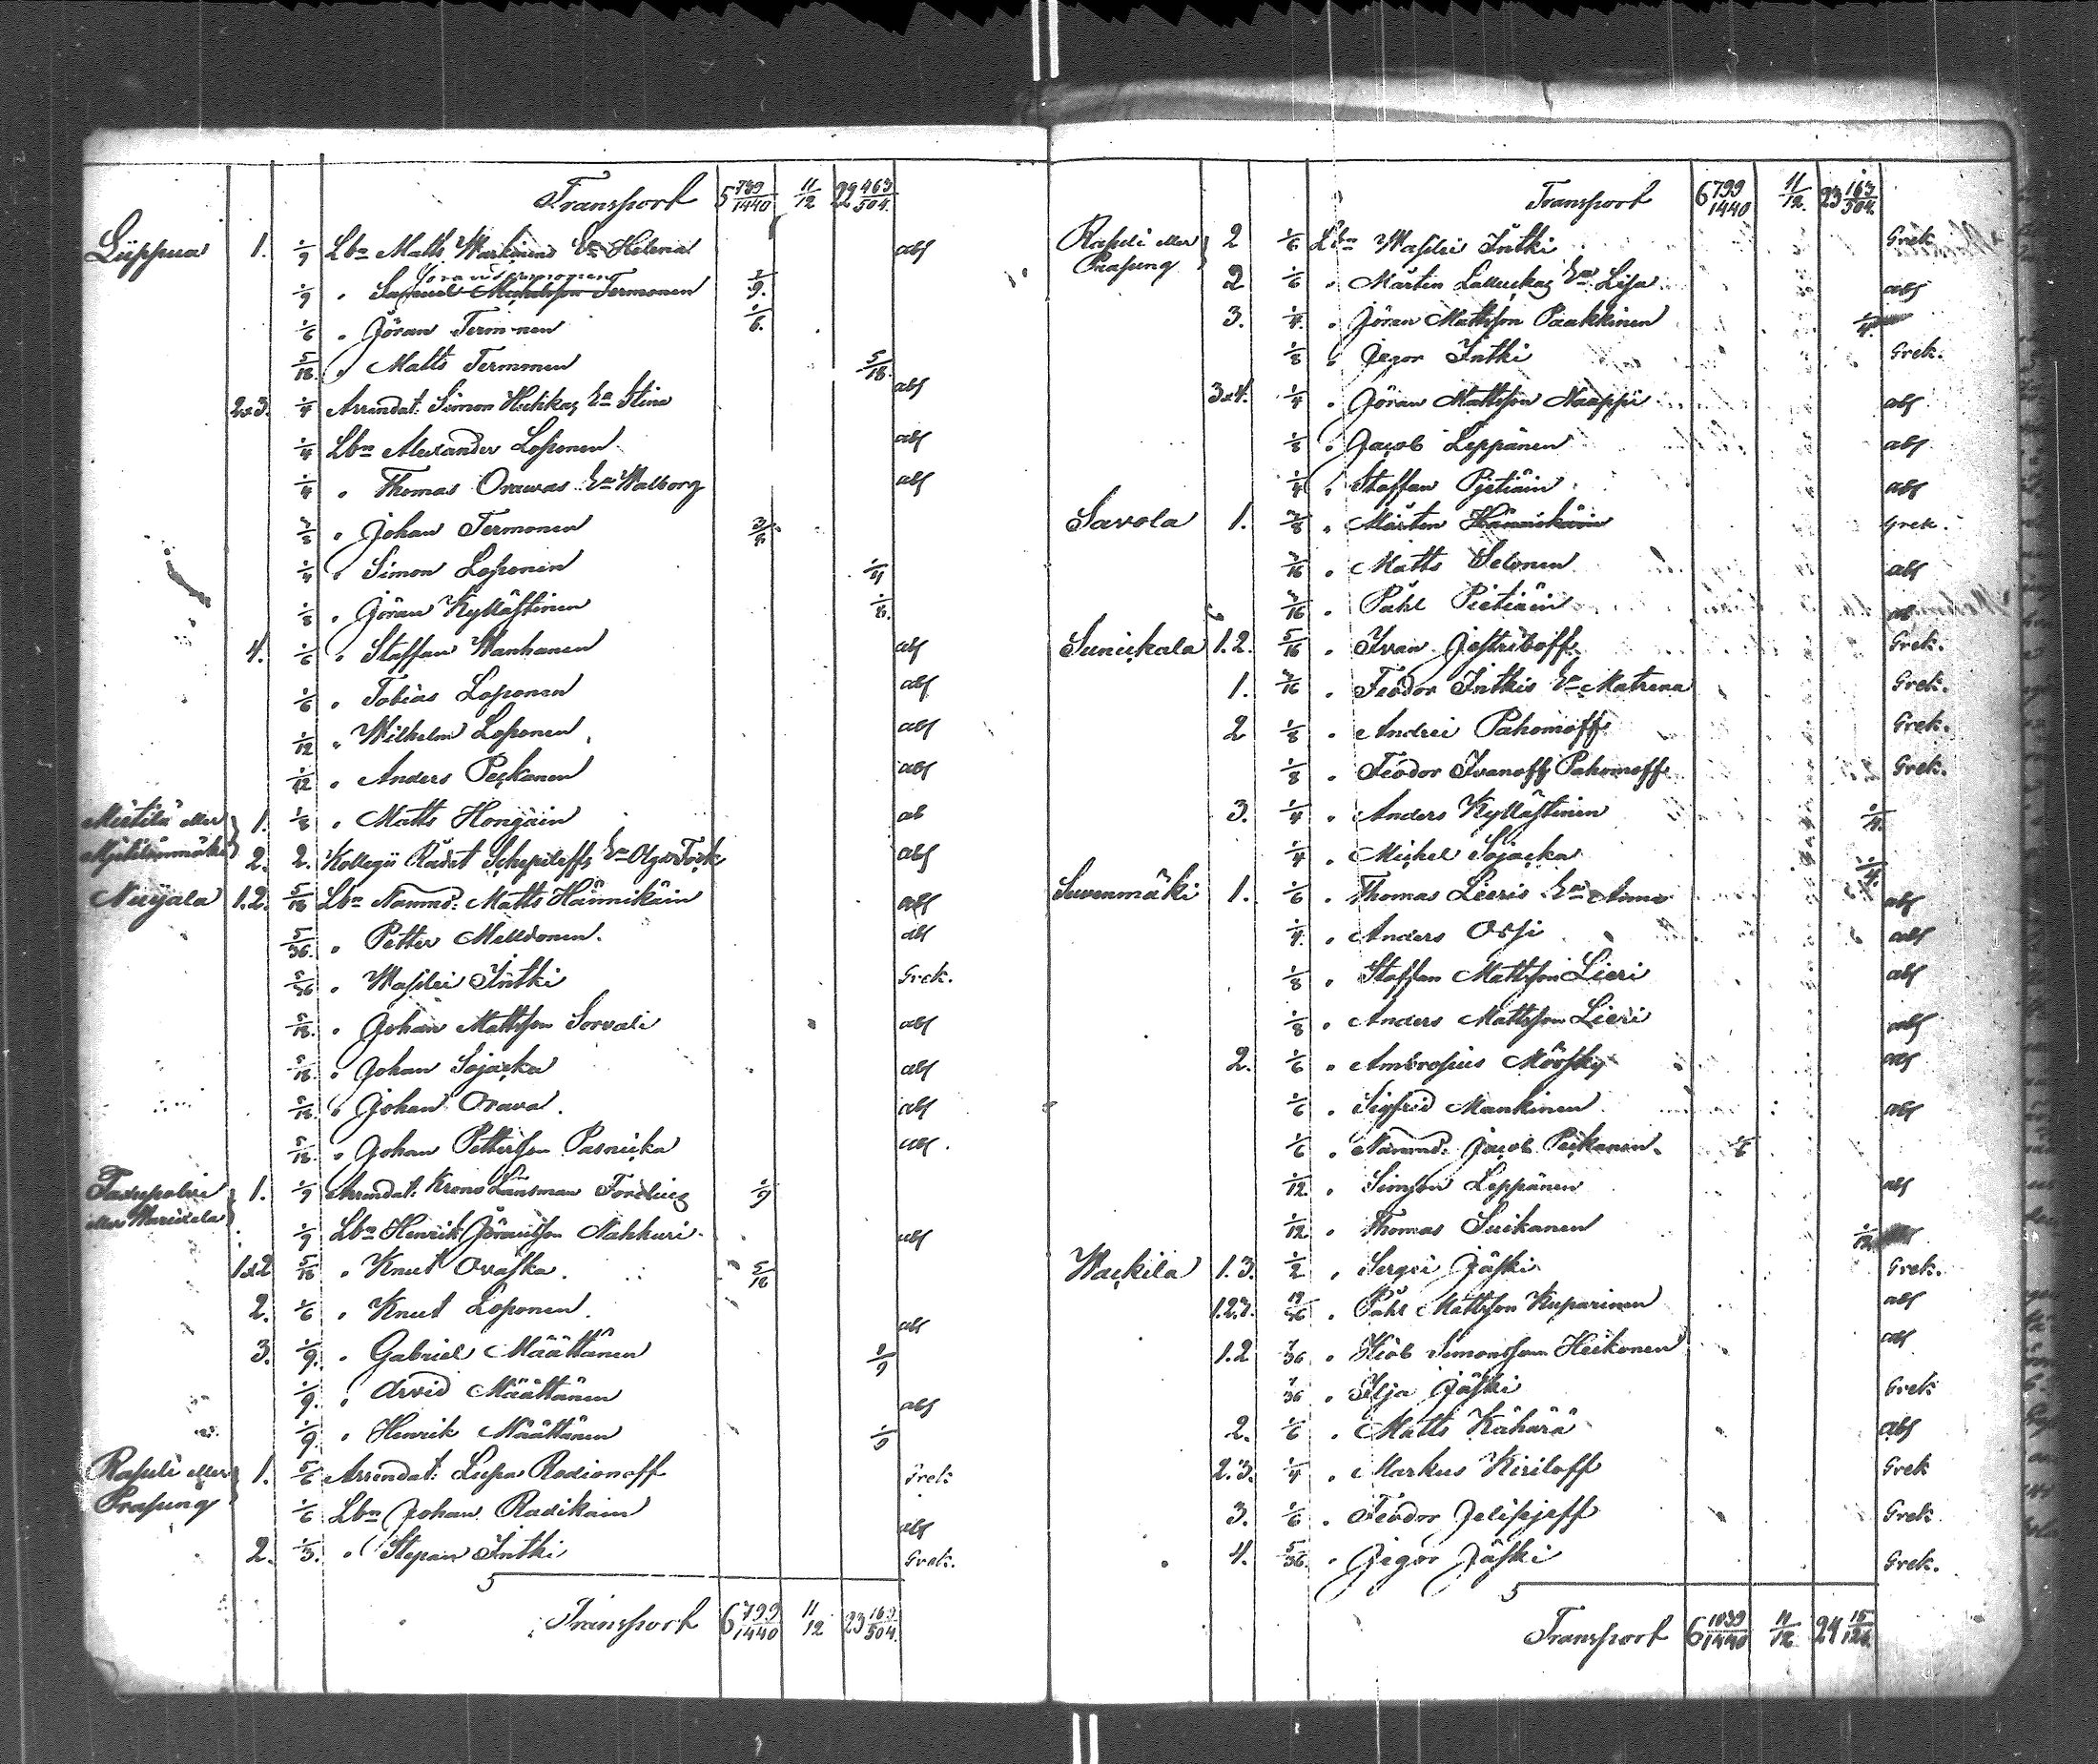 Transport 5 739/1440 11/12 22 463/504
Lüppua 1. 1/9 Lbn Matts Warkinens En Helena abs
1/9 " Samuel Michelsson Termonen 1/9.
1/6 " Jöran Termonen 1/6.
5/18. " Matts Termonen 5/18.
2.3. 1/4 Arrendat: Simon Huhkas En Stina abs
1/4 Lbn Alexander Loponen abs
1/4 " Thomas Orawas En Walborg abs
3/8 " Johan Termonen 3/8.
1/4 " Simon Loponen 1/4
1/8 " Jöran Kyllästinen 1/8.
4. 1/6 " Staffan Wanhanen abs
1/6 " Tobias Loponen abs
1/12 " Wilhelm Loponen abs
1/12 " Anders Peckonen abs
Mistilä eller 1. 1/8 " Matts Hongäin ab
2. 2. Kollegii Rådet Schepeleffs En Olga abs
Nuijala 1.2. 5/18 Lbn Nämnd: Matts Hännikäin abs
5/36. " Petter Melldonen. abs
5/36 " Wasilei Intki Grek.
5/18. " Johan Mattsson Sorvali abs
5/18. " Johan Sojacka abs
5/18. " Johan Orava. abs
5/18. " Johan Pettersson Pasricka abs.
1. 1/9 Arrendat: Krono Länsman 1/9
eller 1/9 Lbn Henrik Jöransson Nahkuri abs
1.2 5/18 " Knut Ovaska. 5/18
2. 1/6 " Knut Loponen. abs
3. 1/9. " Gabriel Määttänen 1/9
1/9. " Arvid Määttänen abs
1/9. " Henrik Määttänen 1/9
Rasuli eller 1. 5/6 Arrendat: Lupa Radionoff Grek
Prasung 1/6 Lbn Johan Radikain abs
2. 1/3. " Stepan Intki Grek.
Transport 6 799/1440 11/12 23 163/504.
Transport 6 799/1440 11/12. 23 163/504.
Rasuli eller 2 1/6 Lbn Wasilei Intki Grek
Prasung
2 1/6 " Mårtin Lalluckas En Lisa abs
3. 1/4. " Jöran Mattsson Paakkinen 1/4.
1/8 " Jegor Intki Grek.
3.4. 1/4 " Jöran Mattsson Naappi abs
1/8 " Jacob Leppänen abs
1/4 " Staffan Pjetiäin abs
Savola 1. 3/8 " Mårten Hännikäin Grek.
3/16 " Matts Selonen abs
3/16 " Påhl Pietiäin ab
Sunickala 1.2. 5/16 " Ivan Jastreboff Grek.
1. 3/16 " Feodor Intkis En Matrena Grek.
2 1/8 " Andrei Pahomoff Grek.
1/8 " Feodor Ivanoff Pahomoff Grek.
3. 1/4 " Anders Kyllästinen 1/4.
1/4 " Michel Sojacka 1/4.
Suvenmäki 1. 1/6 " Thomas Lieris En Anna abs
1/4. " Anders Ossi abs
1/8 " Staffan Mattsson Lieri abs
1/8 " Anders Mattsson Lieri abs
2. 1/6 " Ambrosius Mörsky abs
1/6 " Sigfrid Mankinen abs
1/6 " Nämnd: Jacob Peckanen. 1/6
1/12. " Simson Leppänen abs
1/12 " Thomas Suikanen 1/12
Wackila 1.3. 1/2 " Sergei Jäski Grek.
1.2.3. 19/36 " Påhl Mattsson Kuparinen abs
1.2 7/36 " Hiob Simonsson Heikonen abs
7/36 " Ilja Jäski Grek
2. 1/6 " Matts Kähärä abs
2.3. 1/4 " Markus Kiriloff Grek
3. 1/6 " Feodor Jelisejeff Grek.
4. 5/36. " Jegor Jäski Grek.
Transport 6 1039/1440 11/12 24 15/126.